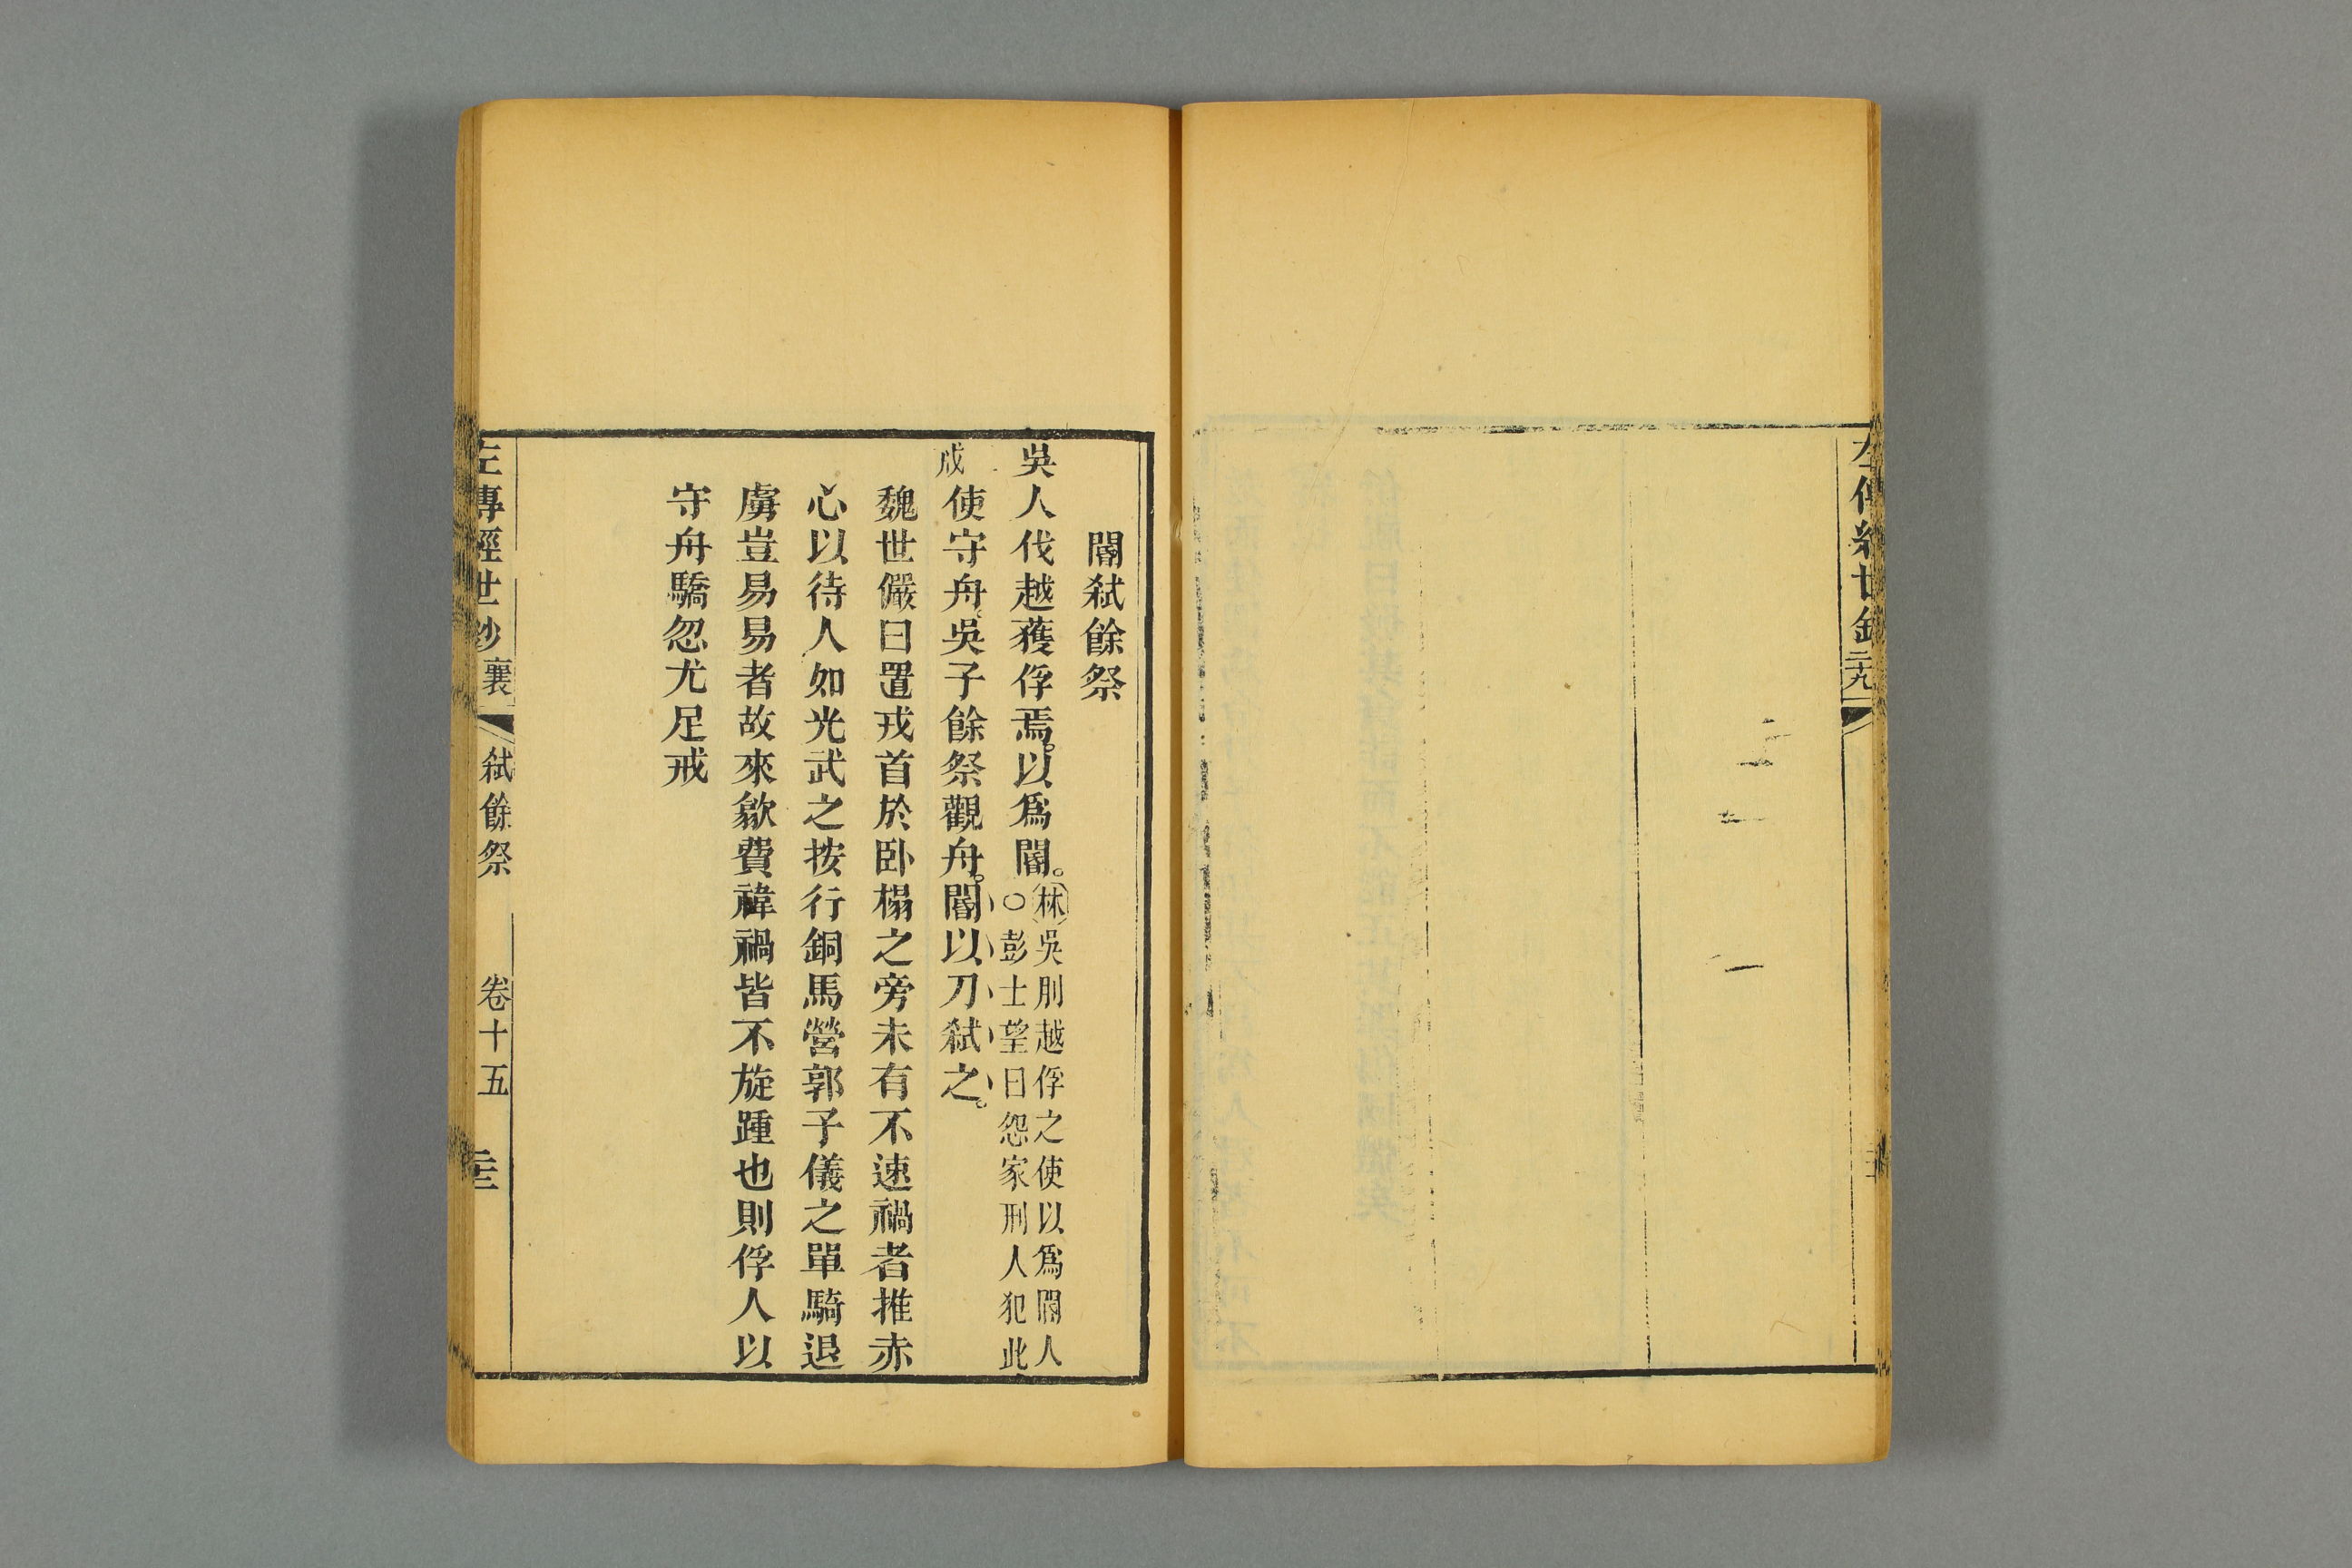 閽弒餘祭
吳人伐越獲俘焉。以爲閽。林吳刖越俘之使以爲閽人
○彭士望曰怨家刑人犯此
戒使守舟。吳子餘祭觀舟。閽以刀弒之。
魏世儼曰置戎首於卧榻之旁未有不速禍者推赤
心以待人如光武之按行銅馬營郭子儀之單騎退
虜豈易易者故來歙費禕禍皆不旋踵也則俘人以
守舟驕忽尤足戒
左傳經世鈔 襄 弒餘祭 卷十五